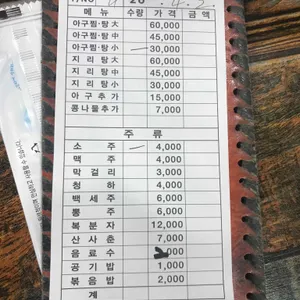 메뉴 수량 가격 금액
아구찜·탕 大 60,000
아구찜·탕 中 45,000
아구찜·탕 小 30,000
지리탕 大 60,000
지리탕 中 45,000
지리탕 小 30,000
아구추가 15,000
콩나물추가 7,000
주류
소주 4,000
맥주 4,000
막걸리 3,000
청하 4,000
백세주 6,000
뽕주 6,000
복분자 12,000
산사춘 7,000
음료수
공기밥 1,000
볶음밥 2,000
계